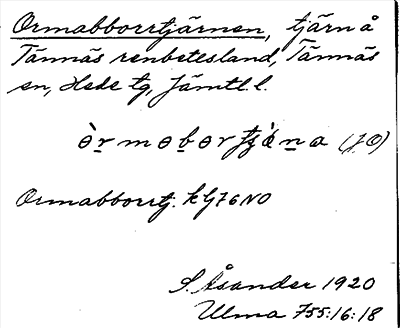 Ormabborrtjärnen, tjärn å
Tännäs renbetesland, Tännäs
sn, Hede tg, Jämtl. l.
(JO)
Ormabborrtj. k G76NO
S. Åsander 1920
Ulma 755:16:18